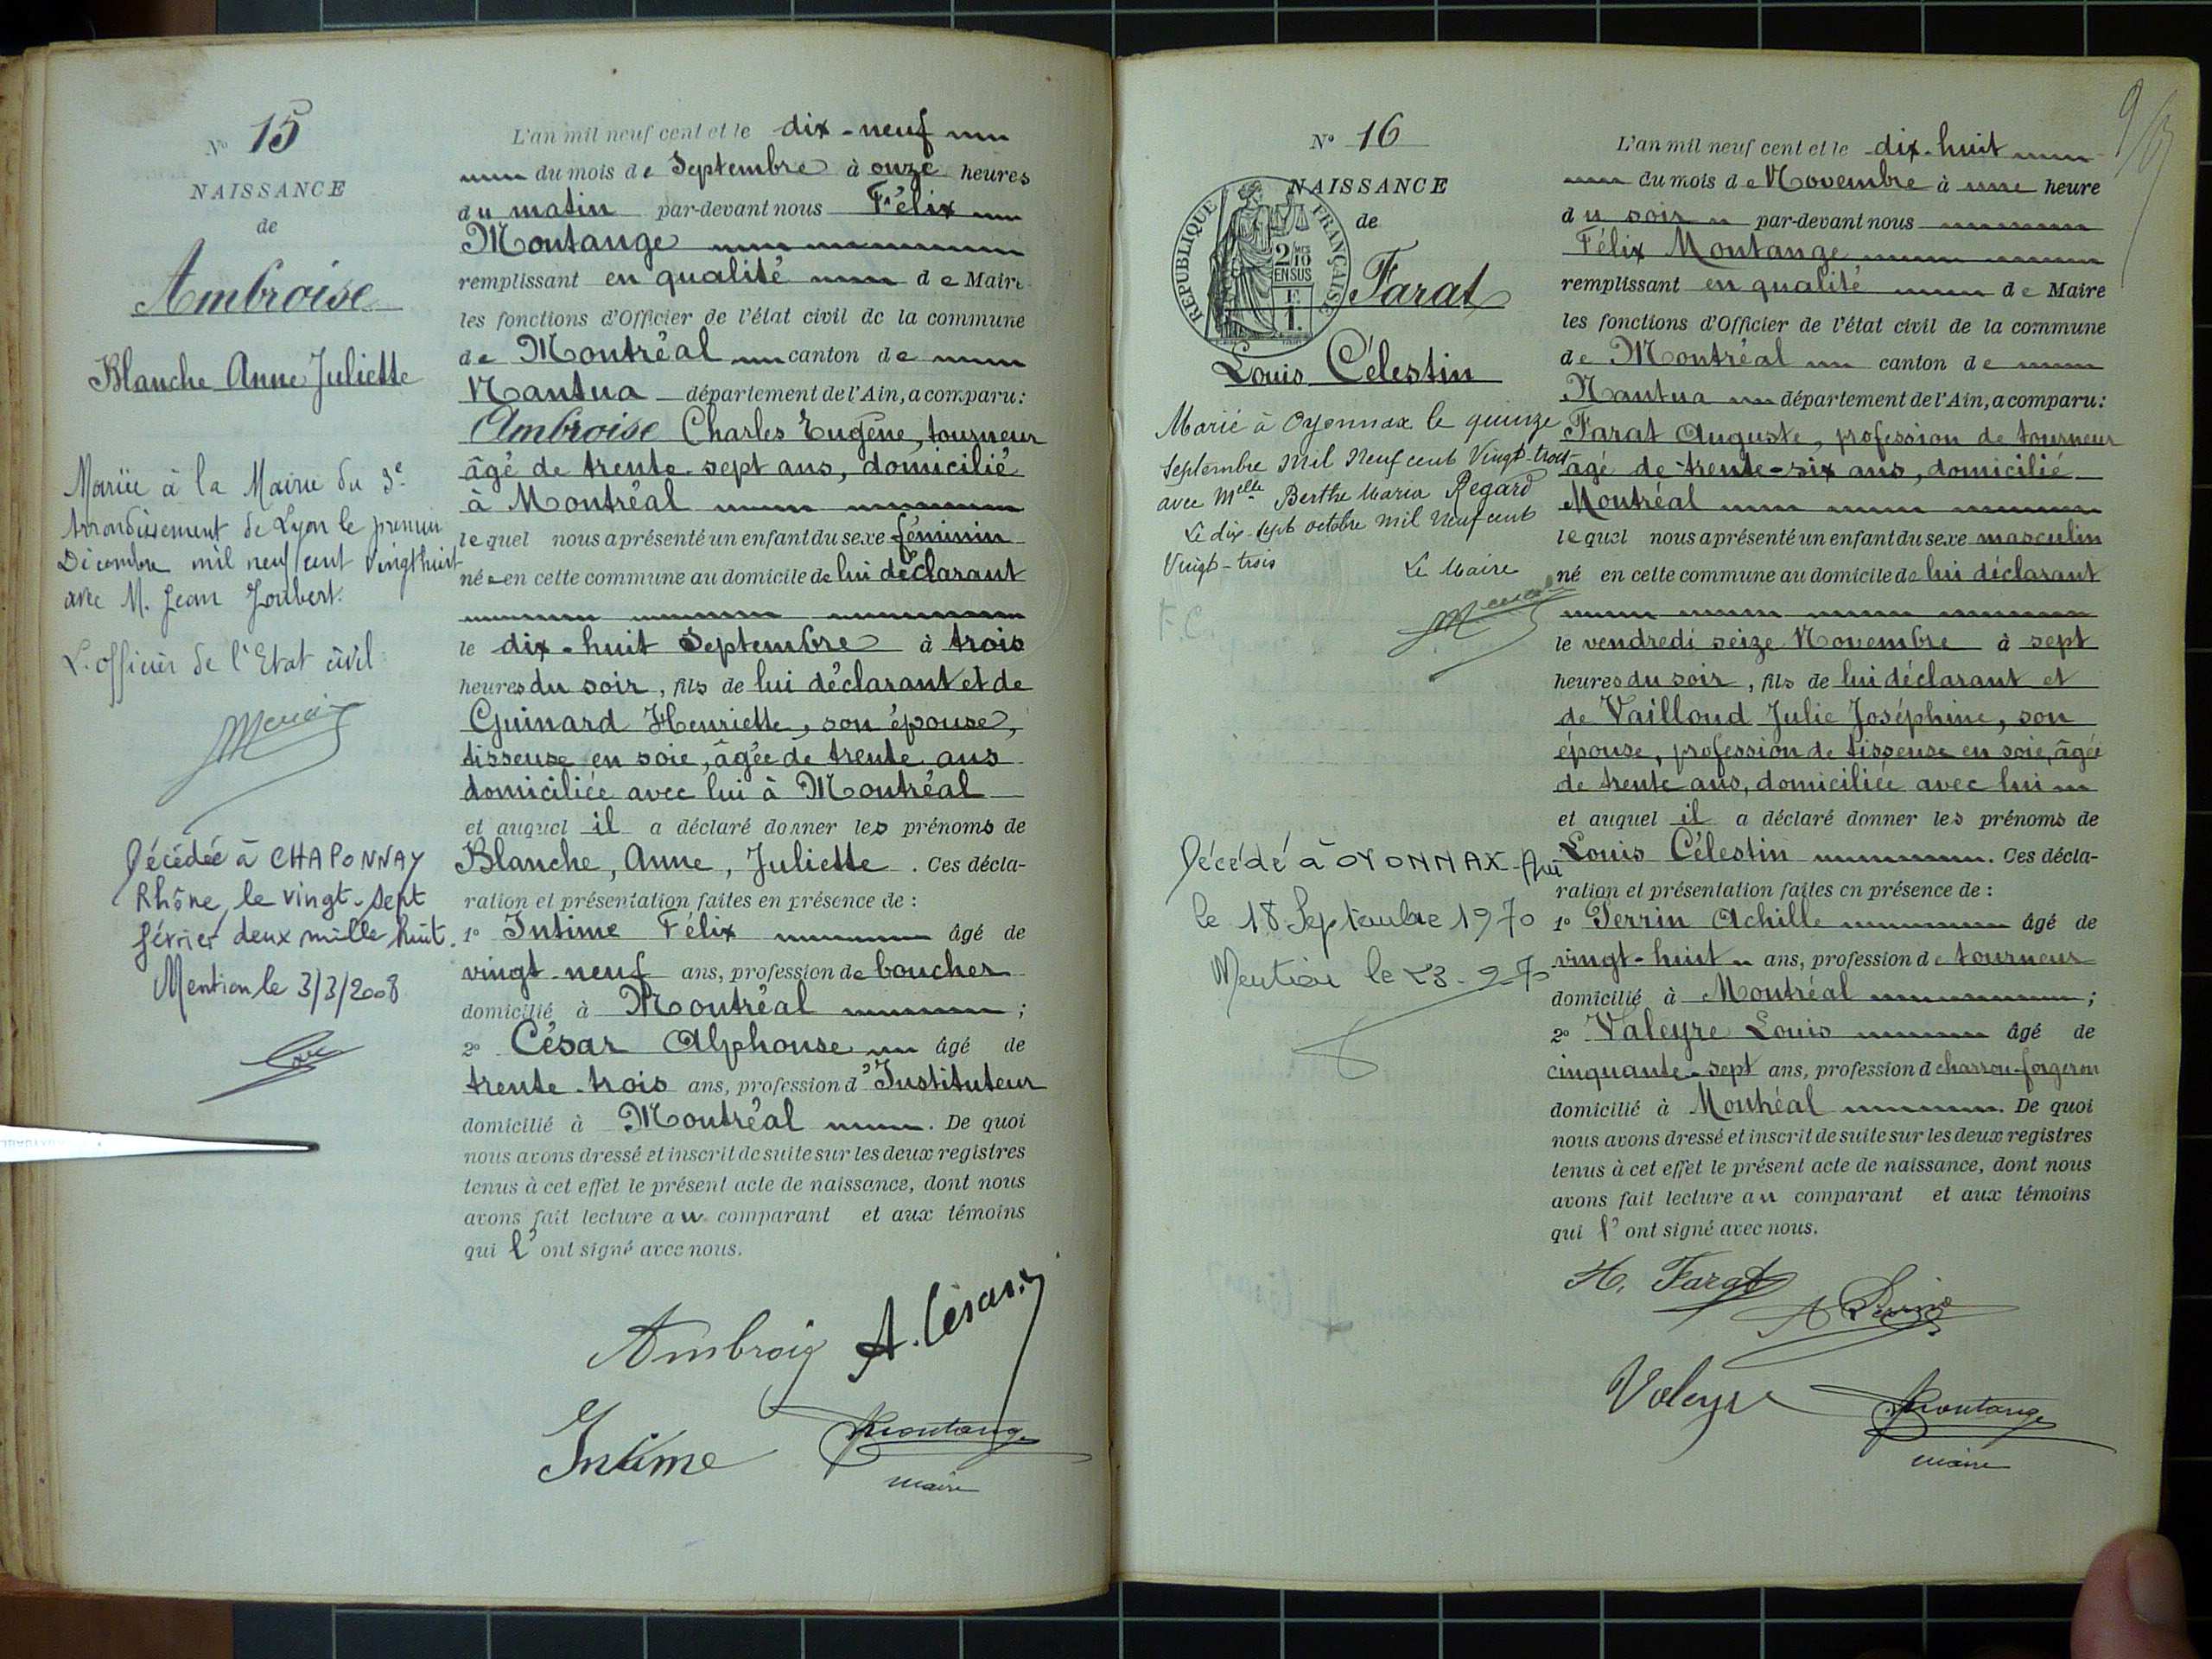 N° 15
NAISSANCE
de
Ambroise
Blanche Anne Juliette
Mariée à la Mairie du 3e
Arrondissement de Lyon le premier
Décembre mil neuf cent vingt huit
avec M. Jean Joubert.
L'officier de l'Etat civil
Décédée à CHAPONNAY
Rhône, le vingt-sept
février deux mille huit.
Mention le 3/3/2008
L'an mil neuf cent et le dix-neuf
du mois de Septembre à onze heures
du matin par-devant nous Félix
Montange
remplissant en qualité de Maire
les fonctions d'Officier de l'état civil de la commune
de Montréal canton de
Nantua département de l'Ain, a comparu:
Ambroise Charles Eugène, tourneur
âgé de trente-sept ans, domicilié
à Montréal
lequel nous a présenté un enfant du sexe féminin
née en cette commune au domicile de lui déclarant
le dix-huit Septembre à trois
heures du soir, fils de lui déclarant et de
Guinard Henriette, son épouse,
tisseuse en soie, âgée de trente ans
domiciliée avec lui à Montréal
et auquel il a déclaré donner les prénoms de
Blanche, Anne, Juliette. Ces décla-
ration et présentation faites en présence de:
1° Intime Félix âgé de
vingt-neuf ans, profession de boucher
domicilié à Montréal ;
2° César Alphonse âgé de
trente-trois ans, profession d'Instituteur
domicilié à Montréal . De quoi
nous avons dressé et inscrit de suite sur les deux registres
tenus à cet effet le présent acte de naissance, dont nous
avons fait lecture au comparant et aux témoins
qui l'ont signé avec nous.
Ambroise A. César
Intime Montange
maire
9/
N° 16
NAISSANCE
de
REPUBLIQUE FRANÇAISE
2/10
EN SUS
F.
1.
Farat
Louis Célestin
Marié à Oyonnax le quinze
Septembre Mil Neuf cent Vingt-trois
avec Melle Berthe Maria Regard
Le dix-sept octobre mil neuf cent
Vingt-trois
Le Maire
F.C
Décédé à OYONNAX-Ain
le 18 Septembre 1970
Mention le 23-9-70
L'an mil neuf cent et le dix-huit
du mois de Novembre à une heure
du soir par-devant nous
Félix Montange
remplissant en qualité de Maire
les fonctions d'Officier de l'état civil de la commune
de Montréal canton de
Nantua département de l'Ain, a comparu:
Farat Auguste, profession de tourneur
âgé de trente-six ans, domicilié
Montréal
lequel nous a présenté un enfant du sexe masculin
né en cette commune au domicile de lui déclarant
le vendredi seize Novembre à sept
heures du soir, fils de lui déclarant et
de Vailloud Julie Joséphine, son
épouse, profession de tisseuse en soie, âgée
de trente ans, domiciliée avec lui
et auquel il a déclaré donner les prénoms de
Louis Célestin . Ces décla-
ration et présentation faites en présence de:
1° Perrin Achille âgé de
vingt-huit ans, profession de tourneur
domicilié à Montréal ;
2° Valeyre Louis âgé de
cinquante-sept ans, profession d charron-forgeron
domicilié à Montréal . De quoi
nous avons dressé et inscrit de suite sur les deux registres
tenus à cet effet le présent acte de naissance, dont nous
avons fait lecture au comparant et aux témoins
qui l'ont signé avec nous.
H. Farat
A Perrin
Valeyre Montange
maire